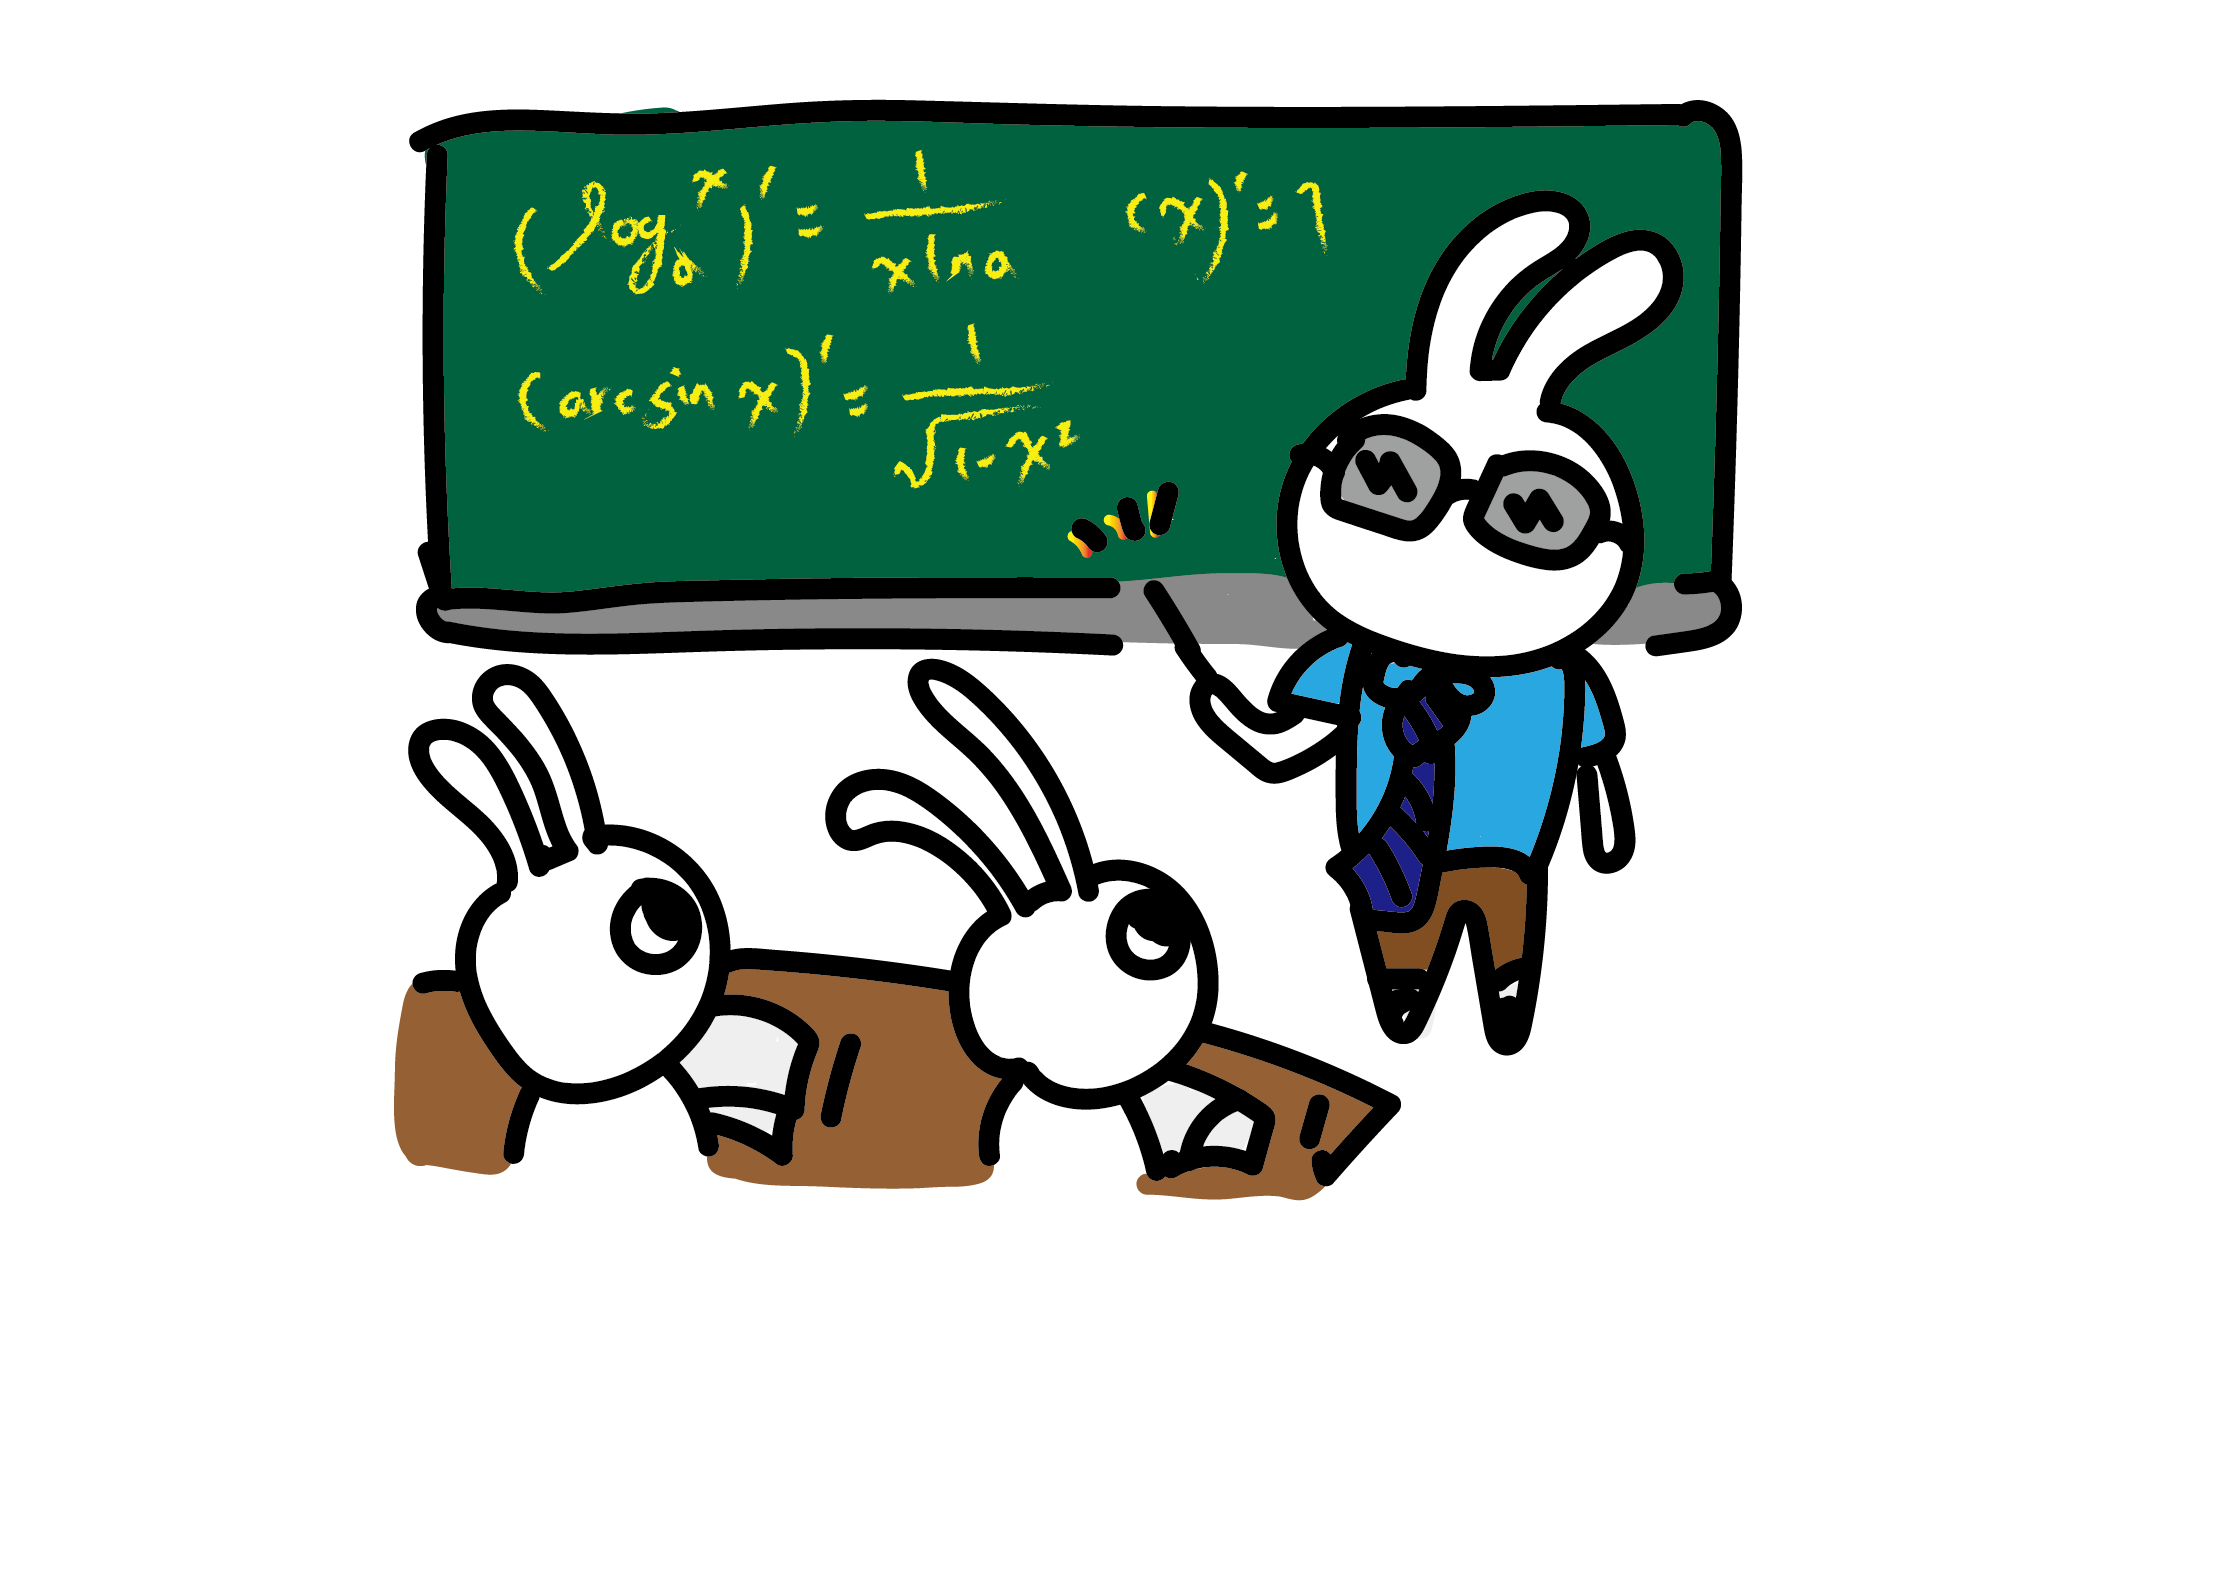 (logₐˣ)' = 1/(x ln a) (x)' = 1
(arcsin x)' = 1/√(1-x²)